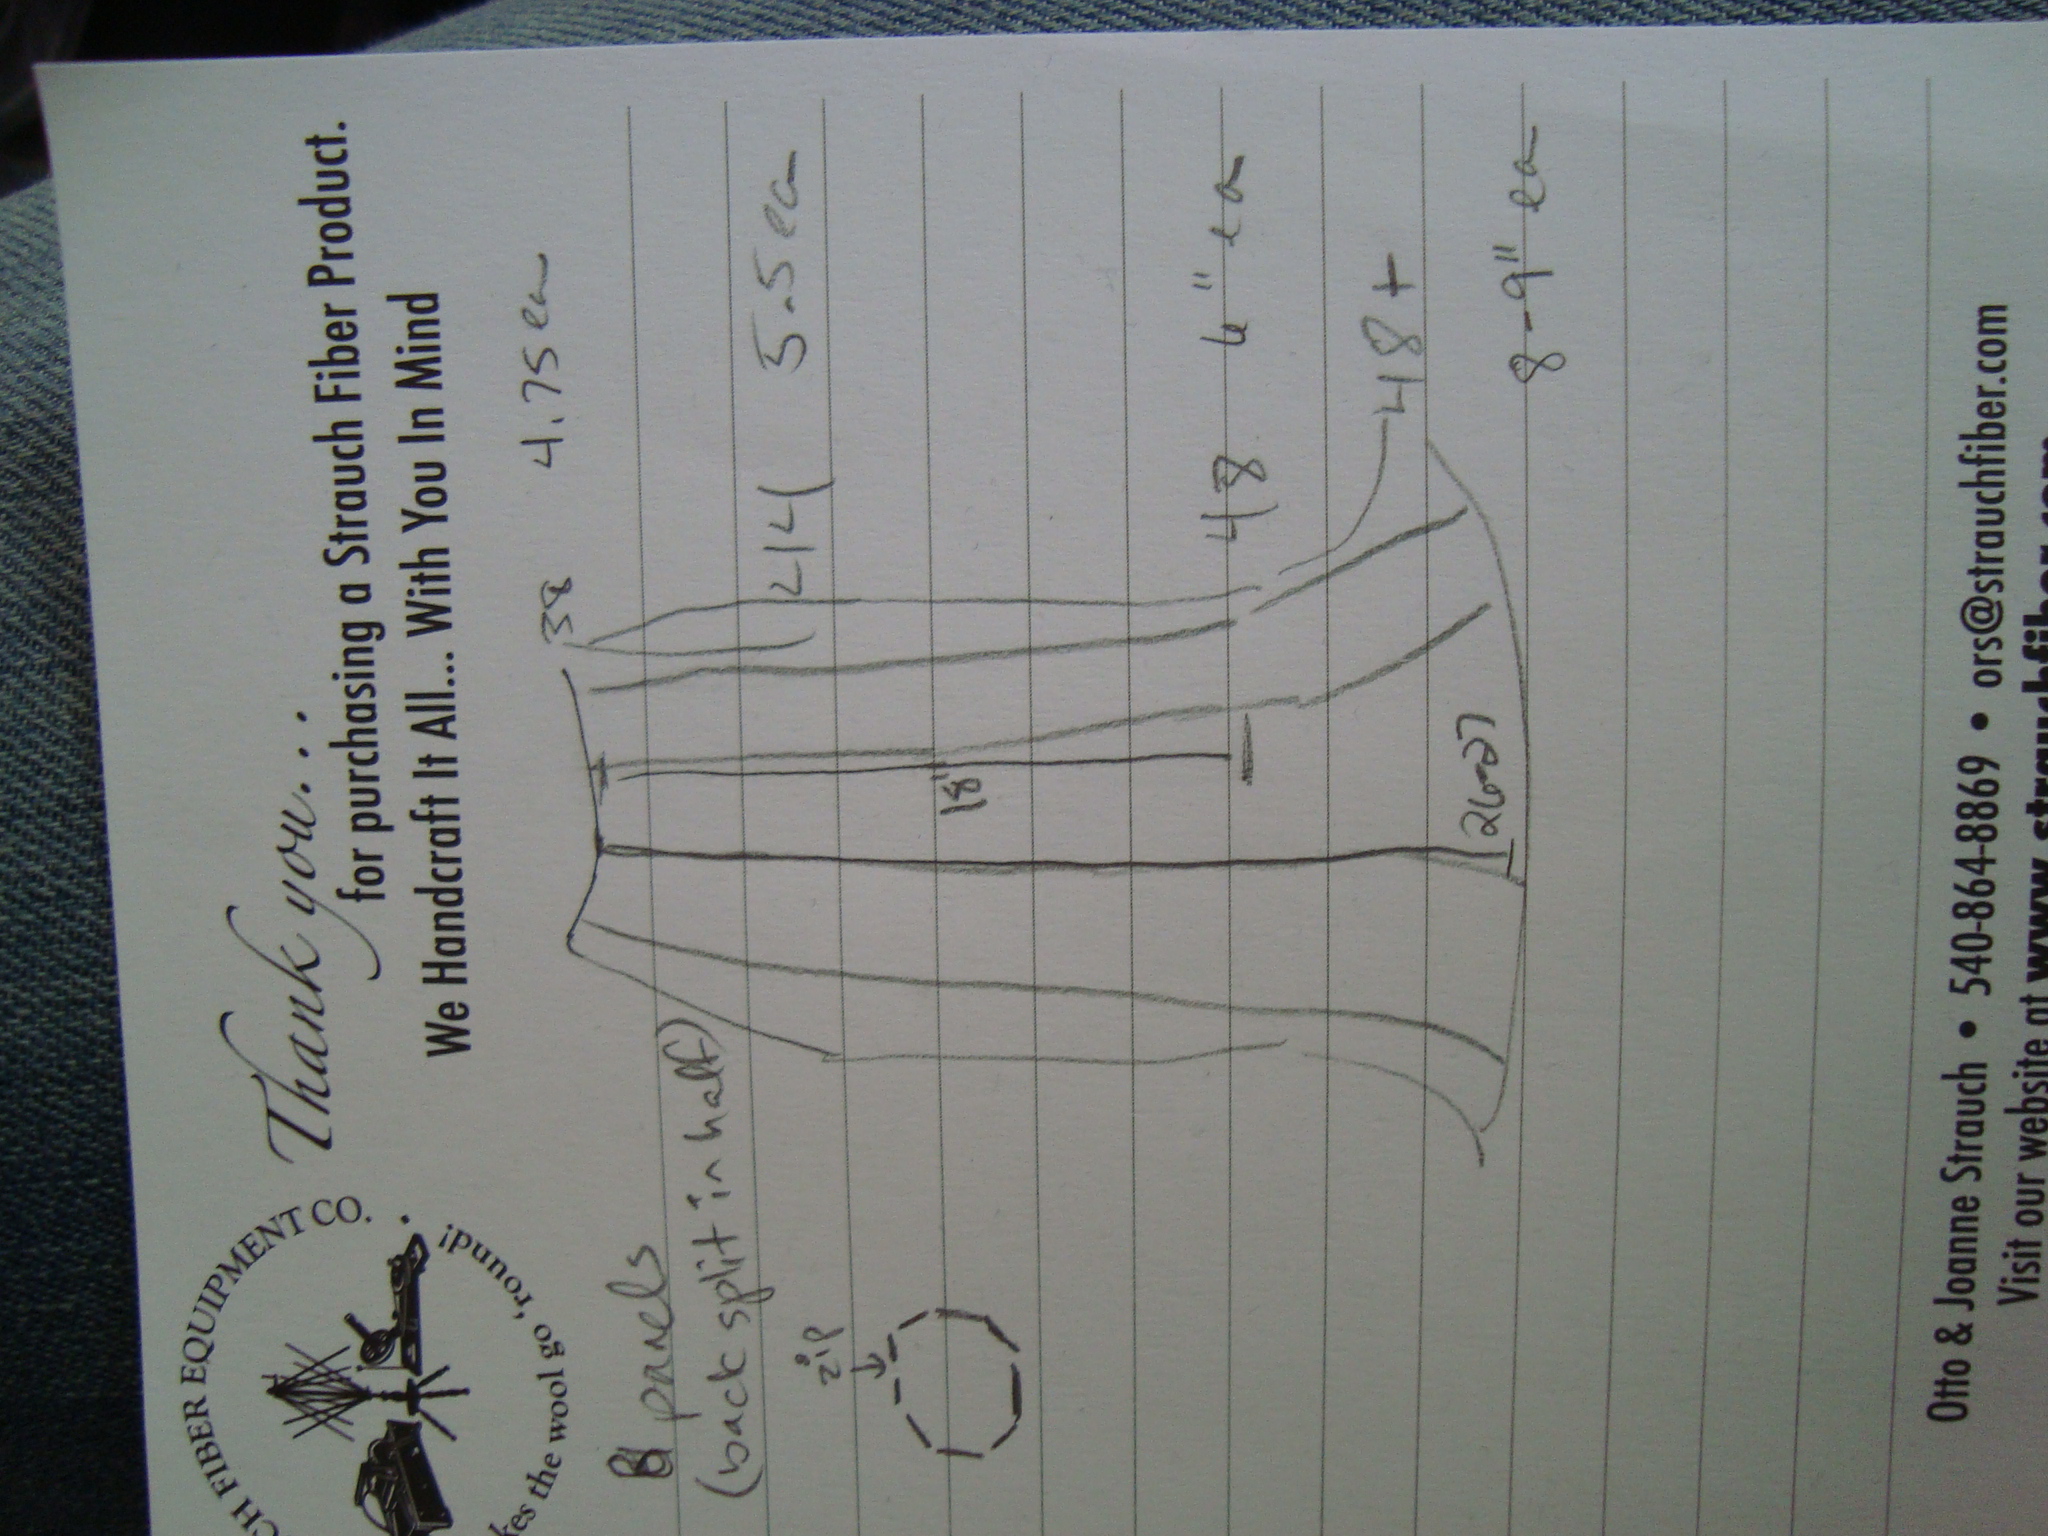 CH FIBER EQUIPMENT CO.
kes the wool go 'round!
Thank you...
for purchasing a Strauch Fiber Product.
We Handcraft It All... With You In Mind
38 4.75 ea
8 panels
(back split in half)
44 5.5 ea
zip
18"
48 6" ea
48+
26-27
8-9" ea
Otto & Joanne Strauch • 540-864-8869 • ors@strauchfiber.com
Visit our website at www.strauchfiber.com